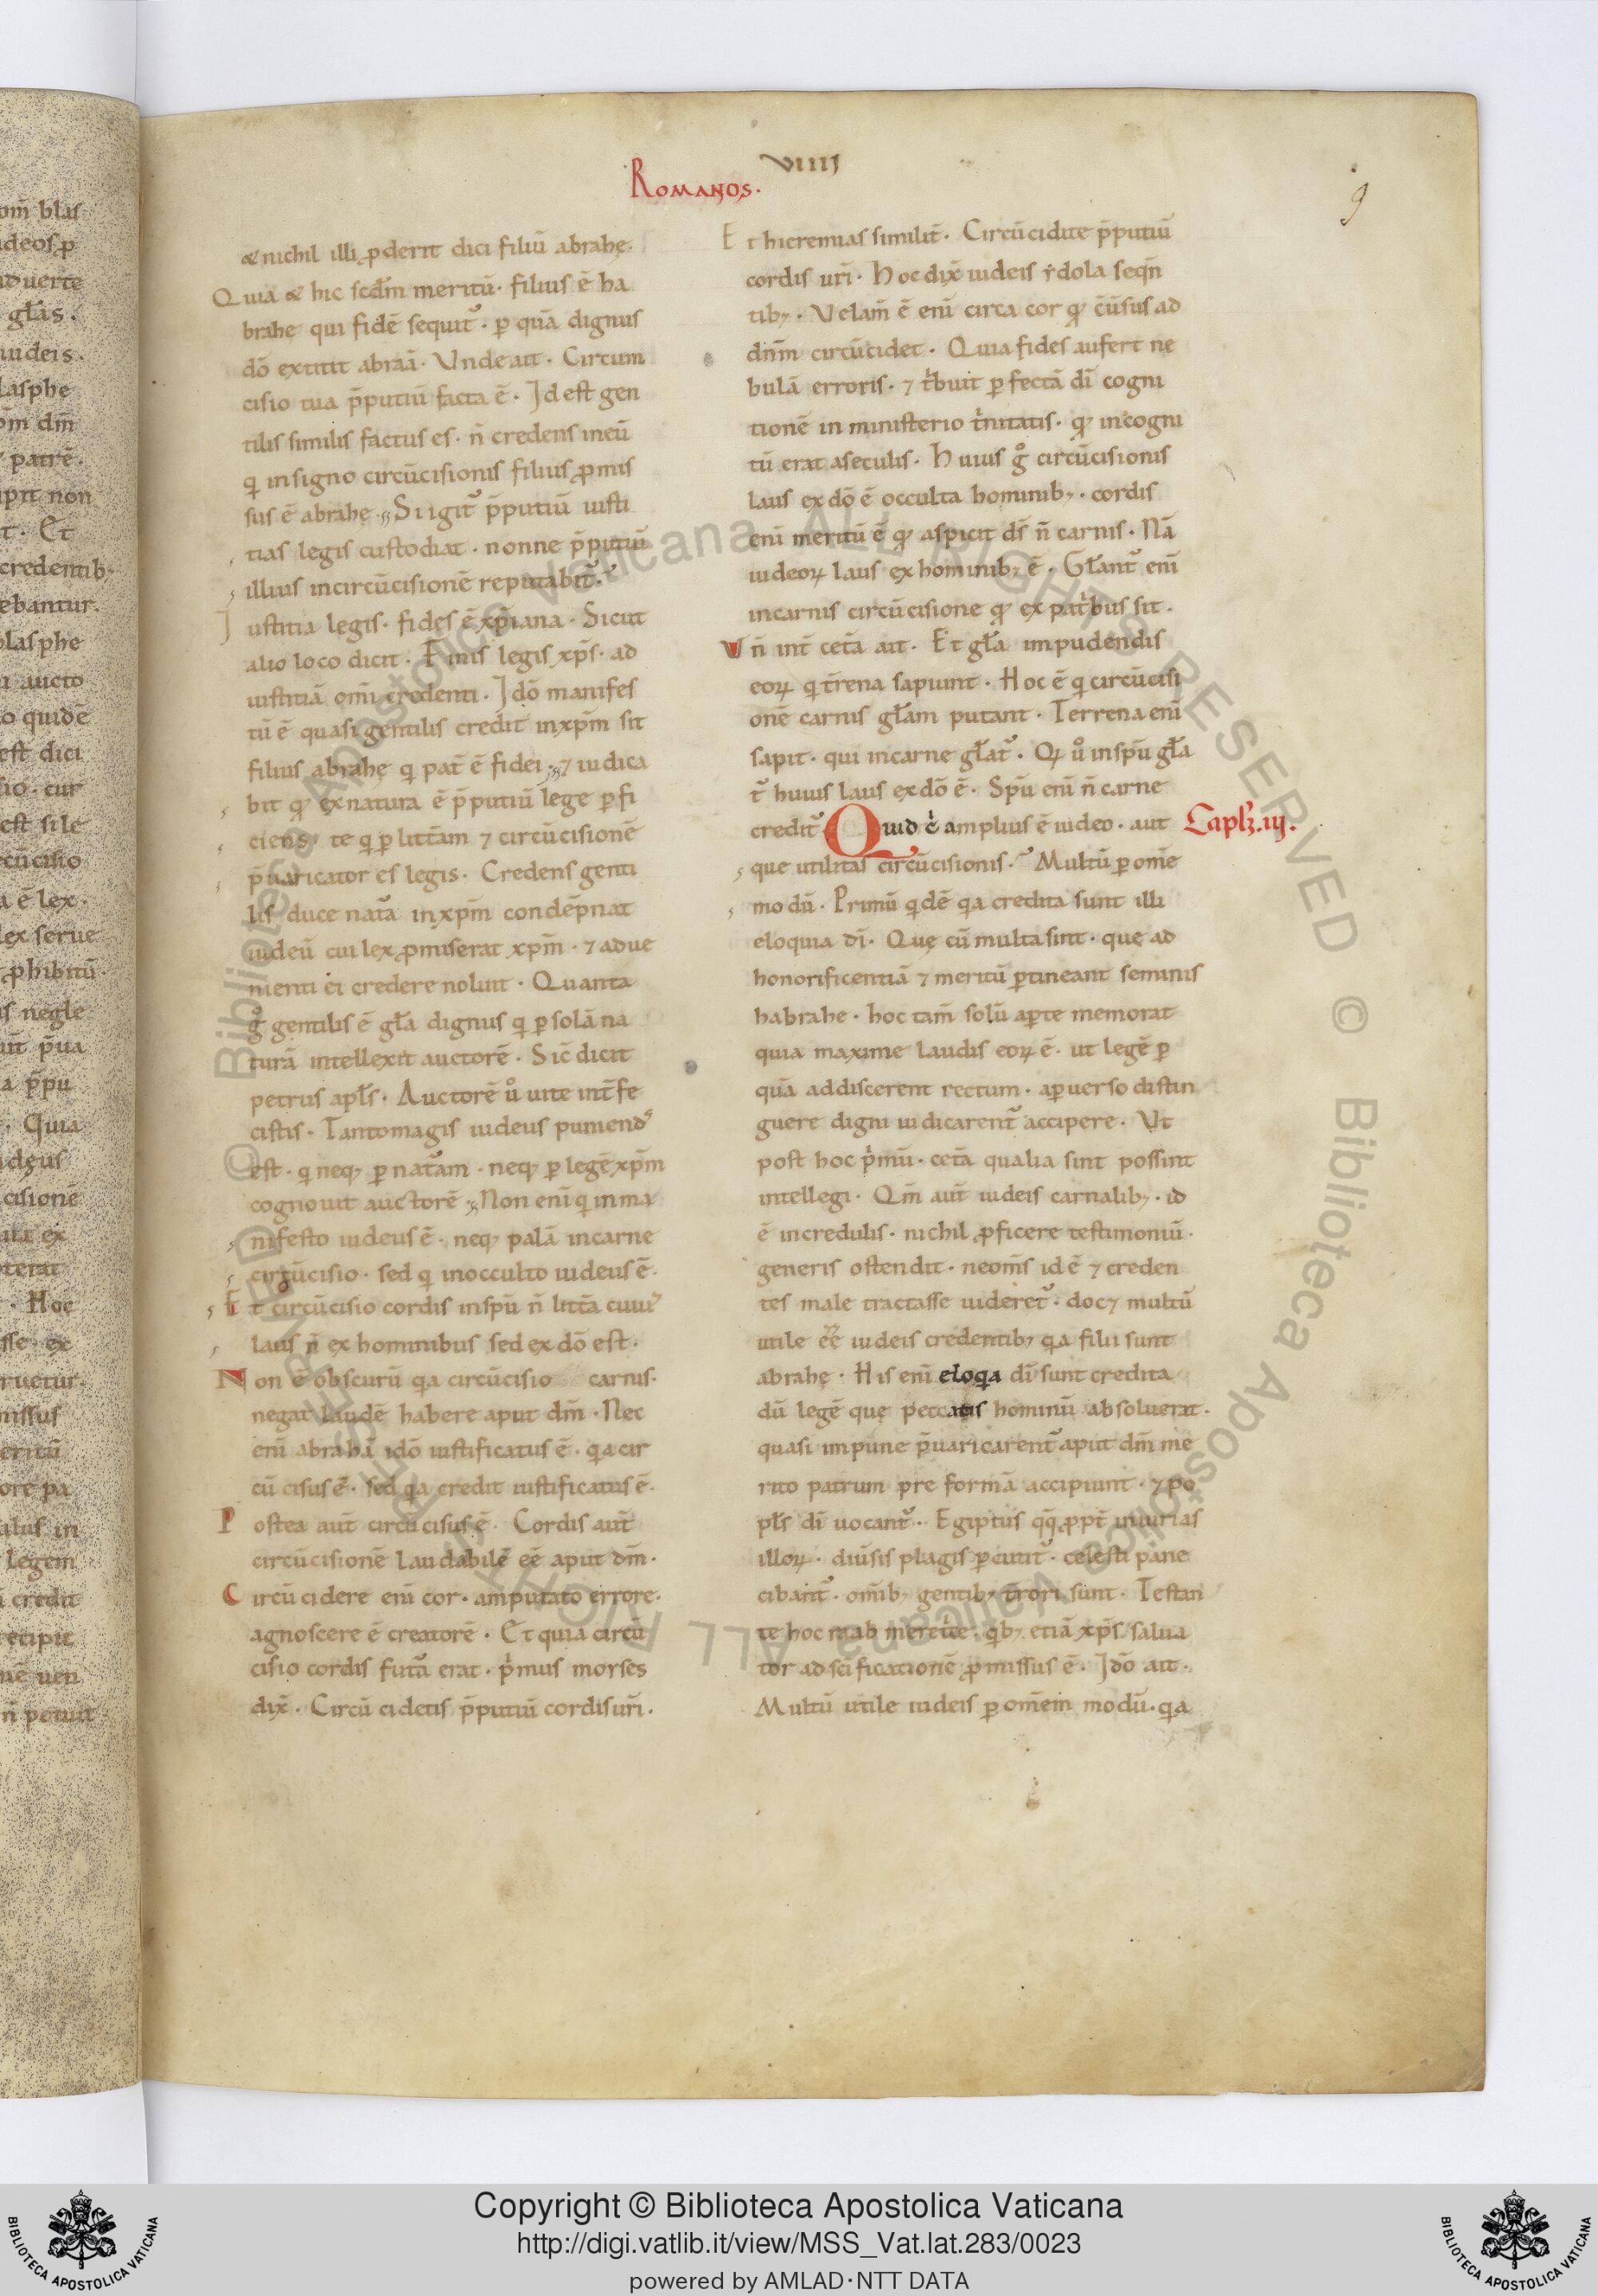 VIIII
Romanos.
9
& nichil illi ꝓderit dici filiū abrahę.
Quia & hic scd̄m meritū. filius ē ha
brahe qui fidē sequit᷑. ꝑ quā dignus
dō extitit abraā. Vnde ait. Circum
cisio tua p̄putiū facta ē. Id est gen
tilis similis factus es. n̄ credens ineū
q insigno circūcisionis filius ꝓmis
sus ē abrahę. Si igit᷑ p̄putiū iusti
tias legis custodiat. nonne p̄putiū
illius incircūcisionē reputabit᷑.
Iustitia legis. fides ē xp̄iana. Sicut
alio loco dicit. Finis legis xp̄s. ad
iustitiā om̄i credenti. Idō manifes
tū ē quasi gentilis credit inxp̄m sit
filius abrahę q pat̄ ē fidei. ⁊ iudica
bit qꝫ exnatura ē p̄putiū lege ꝑfi
ciens. te q ꝑ litt̄am ⁊ circūcisionē
p̄uaricator es legis. Credens genti
lis duce nat᷑a inxp̄m condēpnat
iudeū cui lex ꝓmiserat xp̄m. ⁊ adue
nienti ei credere noluit. Quanta
g̊ gentilis ē gl̄a dignus q ꝑ solā na
turā intellexit auctorē. Sic̄ dicit
petrus apl̄s. Auctorē ů uite int̄fe
cistis. Tantomagis iudeus puniend᷒
est. q neqꝫ ꝑ nat᷑am. neqꝫ ꝑ legē xp̄m
cognouit auctorē. Non eni̅ q inma
nifesto iudeus ē. neqꝫ palā incarne
circūcisio. sed q inocculto iudeus ē.
Et circūcisio cordis inspū n̄ litt̄a cuiu᷒
laus n̄ ex hominibus sed ex dō est.
Non ē obscurū qa circūcisio carnis.
negat laudē habere aput dm̄. Nec
eni̅ abrahā idō iustificatus ē. qa cir
cū cisus ē. sed qa credit iustificatus ē.
Postea aut̄ circū cisus ē. Cordis aut̄
circūcisionē laudabilē eē aput dm̄.
Circū cidere eni̅ cor. amputato errore.
agnoscere ē creatorē. Et quia circū
cisio cordis fut᷑a erat. pⁱmus moyses
dix̄. Circū cidetis p̄putiū cordis ur̄i.
Et hieremias similit̄. Circūcidite p̄putiū
cordis ur̄i. Hoc dix̄ iudeis ẏdola seqn̄
tibꝫ. Velam̄ ē eni̅ circa cor qꝫ c̄ūsus ad
dn̄m circūcidet. Quia fides aufert ne
bulā erroris. ⁊ tⁱbuit ꝑfectā dī cogni
tionē in ministerio tⁱnitatis. qꝫ incogni
tū erat aseculis. Huius g̊ circūcisionis
laus ex dō ē occulta hominibꝫ. cordis
eni̅ meritū ē qꝫ aspicit ds̄ n̄ carnis. Nā
iudeoꝝ laus ex hominibꝫ ē. Gl̄ant᷑ eni̅
incarnis circūcisione qꝫ ex patⁱbus sit.
Vn̄ int̄ cet̄a ait. Et gl̄a impudendis
eoꝝ q t̄rena sapiunt. Hoc ē q circūcisi
onē carnis gl̄am putant. Terrena eni̅
sapit. qui incarne gl̄at᷑. Qꝫ ů inspū gl̄a
t᷑ huius laus ex dō ē. Spū eni̅ n̄ carne
credit᷑. Quid ḡ amplius ē iudeo. aut Caplꝫ. iij.
que utilitas circūcisionis. Multū ꝑ om̄e
modū. Primū qdē qa credita sunt illi
eloquia dī. Quę cū multa sint. que ad
honorificentiā ⁊ meritū ꝑtineant seminis
habrahe. hoc tam̄ solū aꝑte memorat
quia maxime laudis eoꝝ ē. ut legē ꝑ
quā addiscerent rectum. aꝑuerso distin
guere digni iudicarent᷑ accipere. Vt
post hoc pⁱmū. cet̄a qualia sint possint
intellegi. Qm̄ aut̄ iudeis carnalibꝫ. id
ē incredulis. nichil ꝓficere testimoniū.
generis ostendit. neom̄s id ē ⁊ creden
tes male tractasse uideret᷑. docꝫ multū
utile eē iudeis credentibꝫ qa filii sunt
abrahę. His eni̅ eloqa dī sunt credita
dū legē quę peccatis hominū absoluerat.
quasi impune p̄uaricarent᷑ aput dm̄ me
rito patrum pre formā accipiunt. ⁊ po
pl̄s dī uocant᷑. Egiptus qq ꝓpt̄ iniurias
illoꝝ. diūsis plagis ꝑcutit᷑. celesti pane
cibant᷑. om̄ibꝫ gentibꝫ t̄rori sunt. Testan
te hoc raab meretⁱce. qbꝫ etiā xp̄s salua
tor ad sc̄ificationē ꝓmissus ē. Idō ait.
Multū utile iudeis ꝑ om̄em modū. qa
Copyright © Biblioteca Apostolica Vaticana
http://digi.vatlib.it/view/MSS_Vat.lat.283/0023
powered by AMLAD·NTT DATA